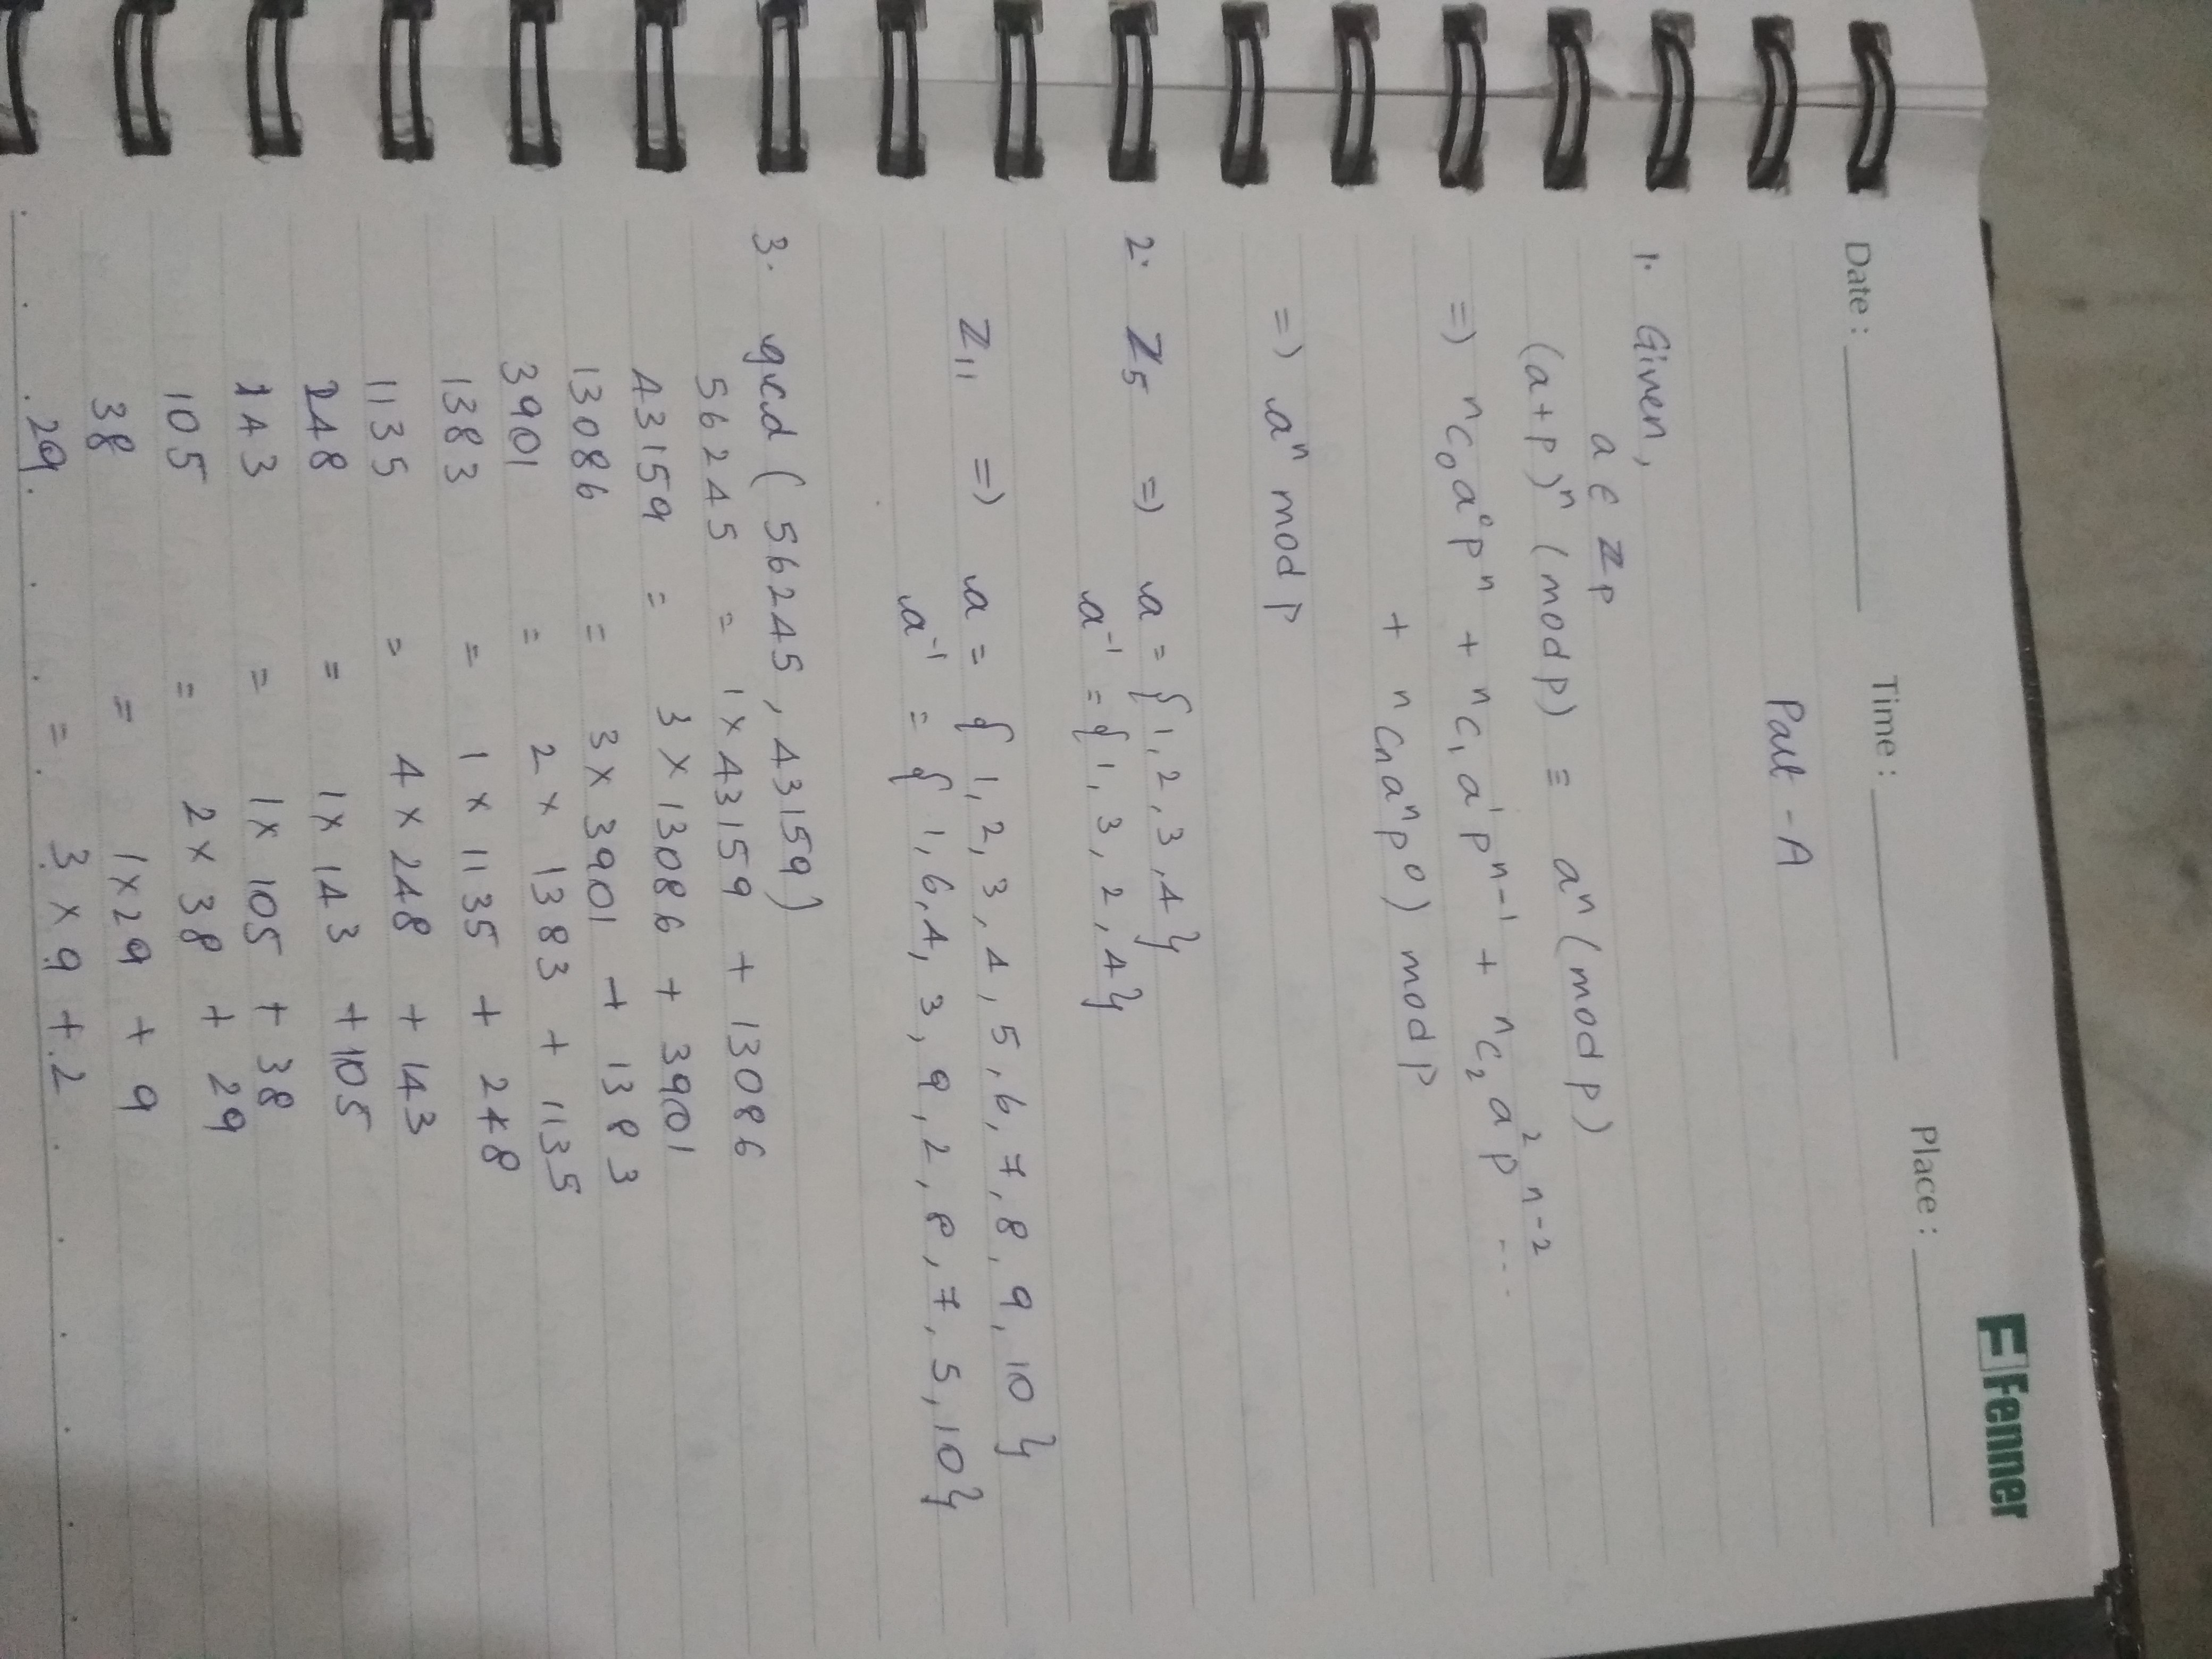 Fenner
Date: Time: Place:
Part - A
1. Given,
a ∈ Zp
(a+p)ⁿ (mod p) ≡ aⁿ (mod p)
=) ⁿC₀a⁰pⁿ + ⁿC₁a¹pⁿ⁻¹ + ⁿC₂a²pⁿ⁻² ...
+ ⁿCₙaⁿp⁰) mod p
=) aⁿ mod p
2. Z₅ =) a = {1, 2, 3, 4}
a⁻¹ = {1, 3, 2, 4}
Z₁₁ =) a = {1, 2, 3, 4, 5, 6, 7, 8, 9, 10}
a⁻¹ = {1, 6, 4, 3, 9, 2, 8, 7, 5, 10}
3. gcd (56245, 43159)
56245 = 1 × 43159 + 13086
43159 = 3 × 13086 + 3901
13086 = 3 × 3901 + 1383
3901 = 2 × 1383 + 1135
1383 = 1 × 1135 + 248
1135 = 4 × 248 + 143
248 = 1 × 143 + 105
143 = 1 × 105 + 38
105 = 2 × 38 + 29
38 = 1 × 29 + 9
29 = 3 × 9 + 2